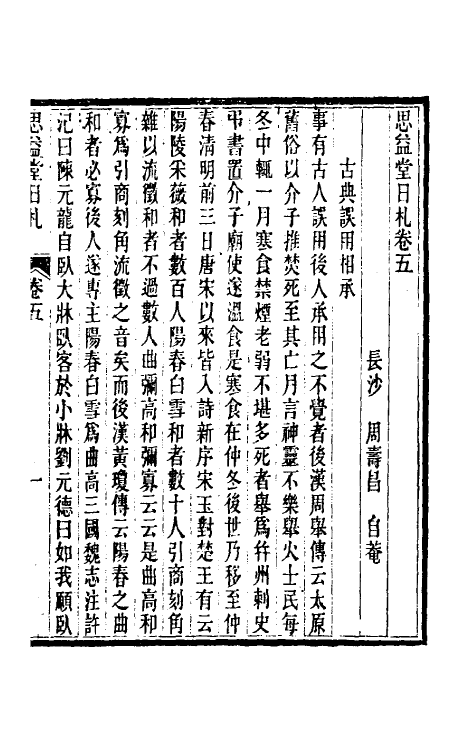 思益堂日札卷五
長沙　周壽昌　自菴
古典誤用相承
事有古人誤用後人承用之不覺者後漢周舉傳云太原
舊俗以介子推焚死至其亡月言神靈不樂舉火士民每
冬中輒一月寒食禁煙老弱不堪多死者舉為并州刺史
弔書置介子廟使遂溫食是寒食在仲冬後世乃移至仲
春清明前三日唐宋以來皆入詩新序宋玉對楚王有云
陽陵采薇和者數百人陽春白雪和者數十人引商刻角
雜以流徵和者不過數人曲彌高和彌寡云云是曲高和
寡爲引商刻角流徵之音矣而後漢黃瓊傳云陽春之曲
和者必寡後人遂專主陽春白雪爲曲高三國魏志注許
汜曰陳元龍自臥大牀臥客於小牀劉元德曰如我願臥
思益堂日札　卷五　一